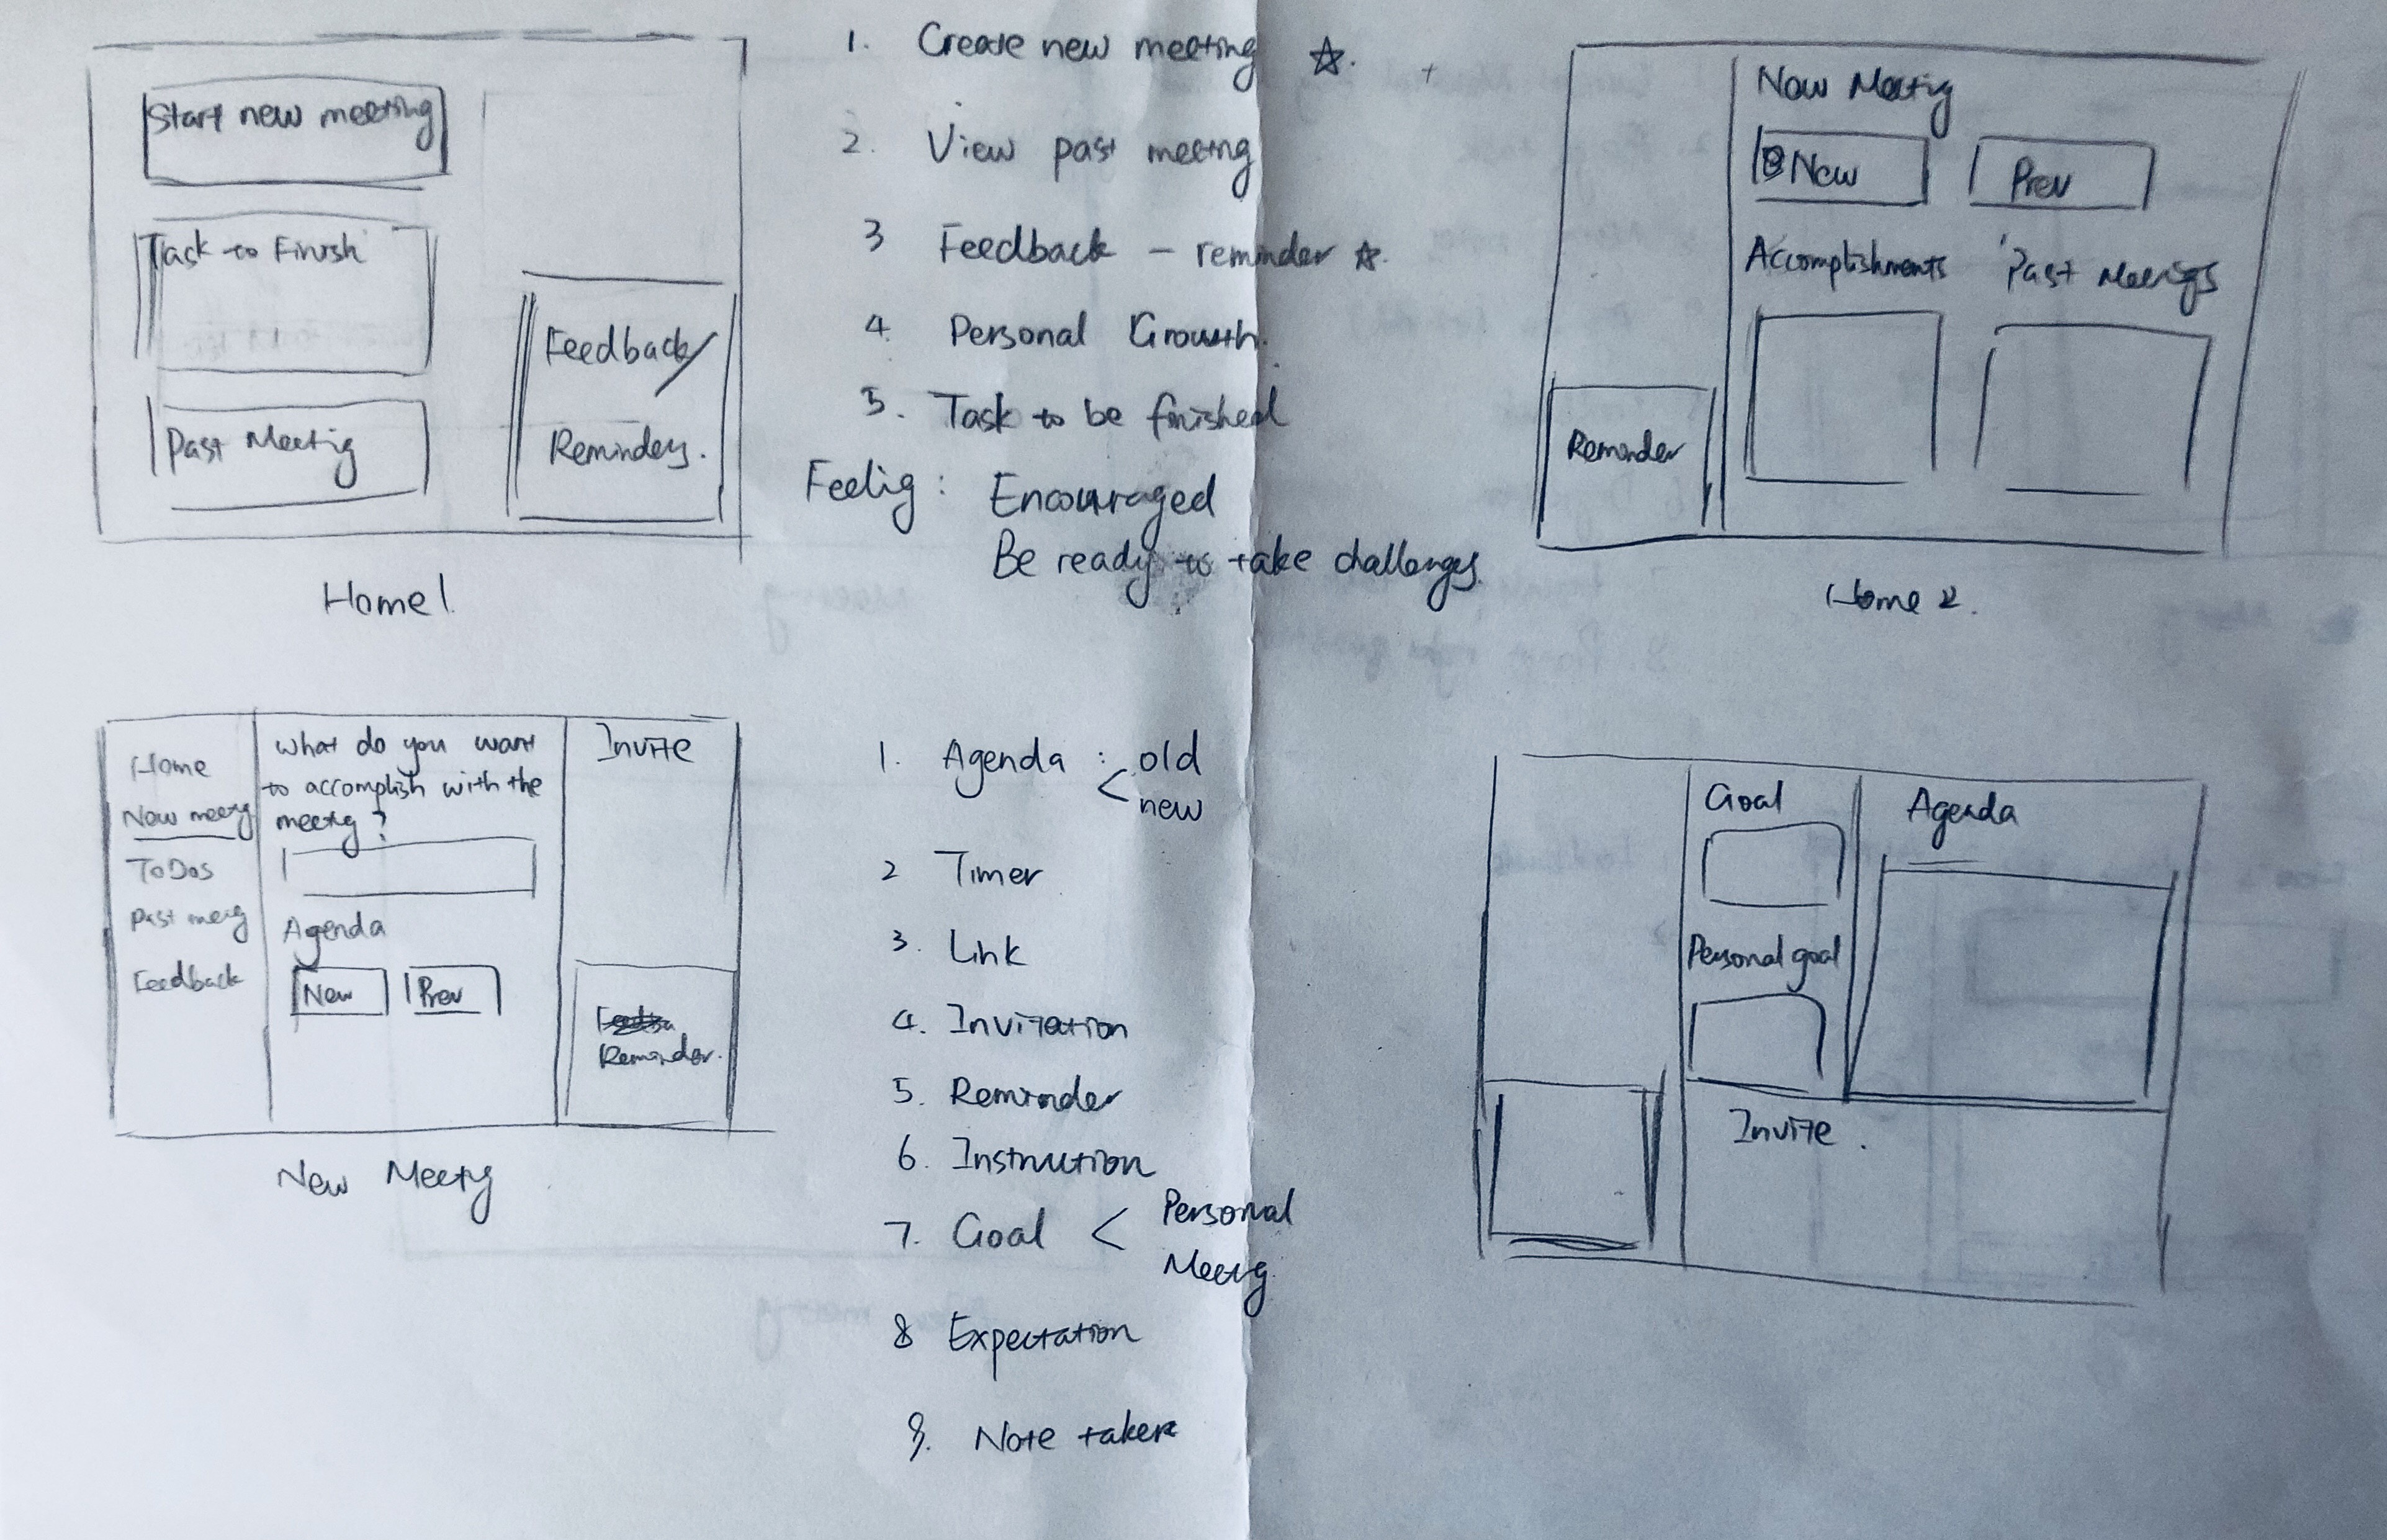 Start new meeting
Task to Finish
Past Meetig
Feedback/
Reminders.
Home 1.
1. Create new meeting ☆.
2. View past meetng
3 Feedback - reminder ☆.
4. Personal Growth.
5. Task to be finished
Feelig: Encouraged
Be ready to take challenges.
New Meetig
New
Prev
Accomplishments
Past Meetigs
Reminder
Home 2.
Home
New meetg
ToDos
Past meeg
Feedback
What do you want
to accomplish with the
meetig?
Agenda
New
Prev
Invite
Reminder.
New Meetg
1. Agenda : < old
new
2 Timer
3. Link
4. Invitation
5. Reminder
6. Instrution
7. Goal < Personal
Meetg.
8 Expectation
9. Note taker
Goal
Personal goal
Agenda
Invite.